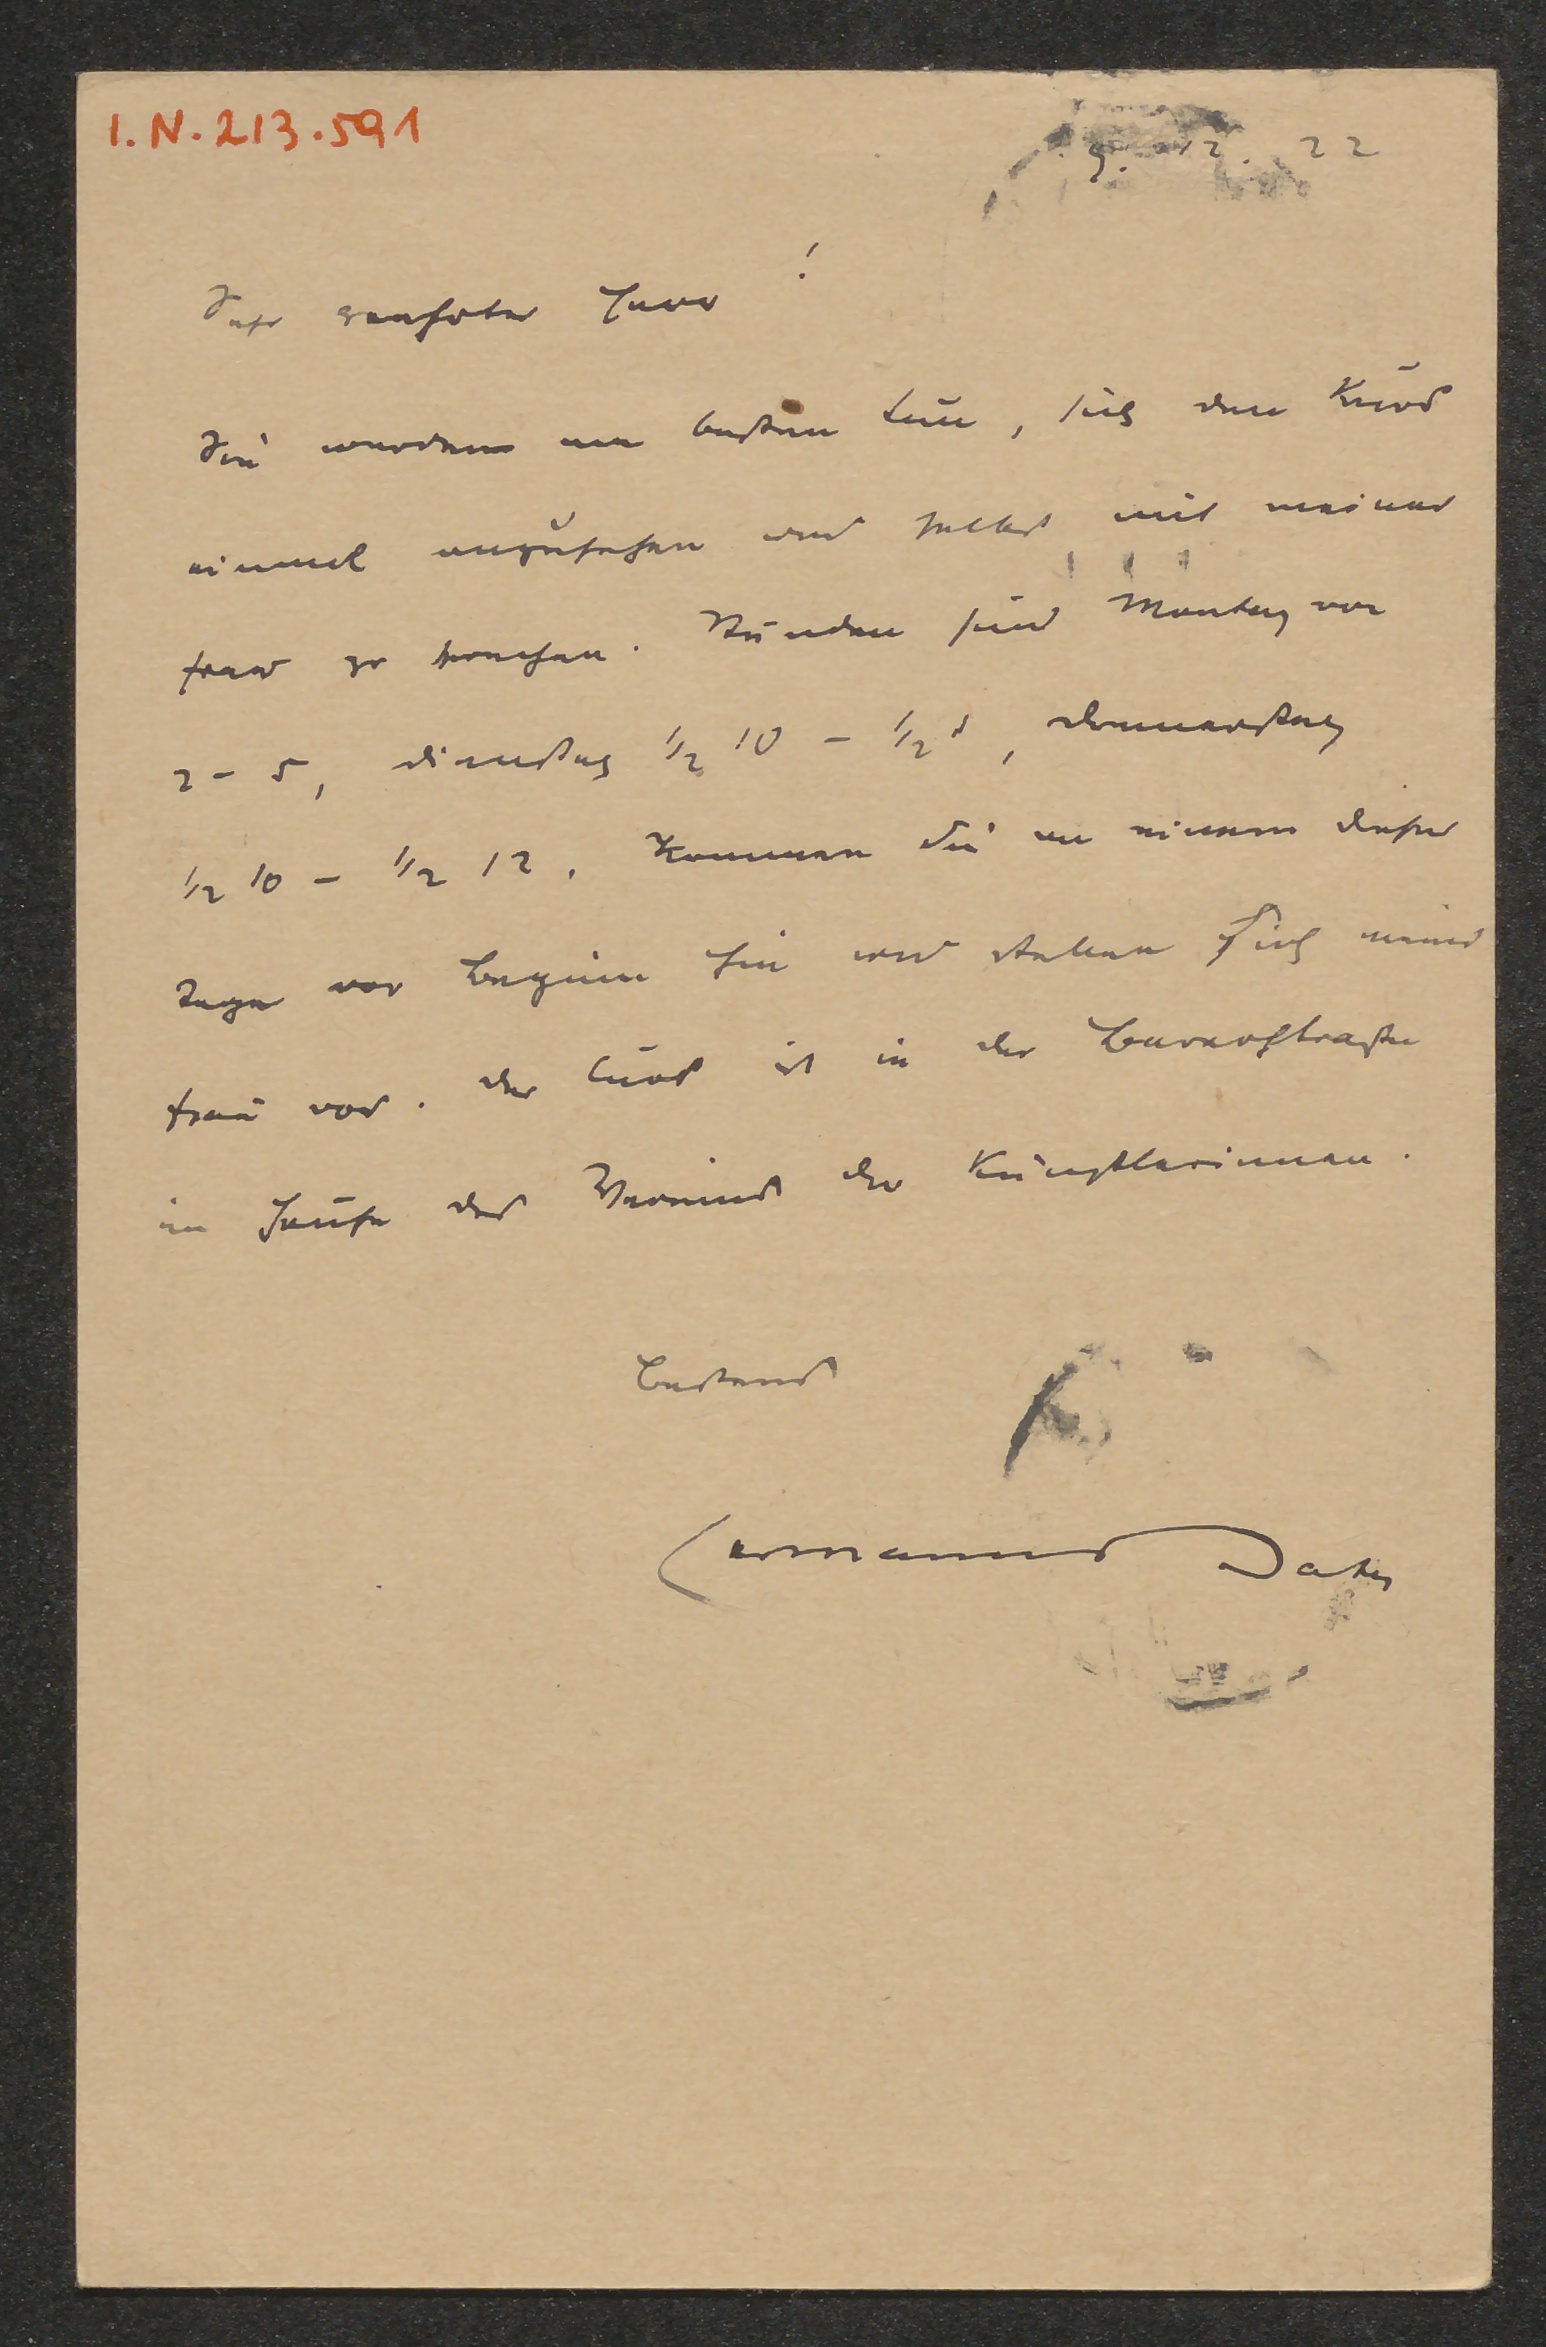 I.N. 213.591
9. 12. 22
Sehr geehrter Herr!
Sie werden am besten tun, sich den Kurs
einmal anzusehen und selbst mit meiner
Frau zu sprechen. Stunden sind Montag von
2 - 5, Dienstag ½ 10 - ½ 1, Donnerstag
½ 10 - ½ 12. Kommen Sie an einem dieser
Tage vor Beginn hin und stellen Sich meiner
Frau vor. Der Curs ist in der Barerstrasse
im Hause des Vereins der Künstlerinnen.
Bestens